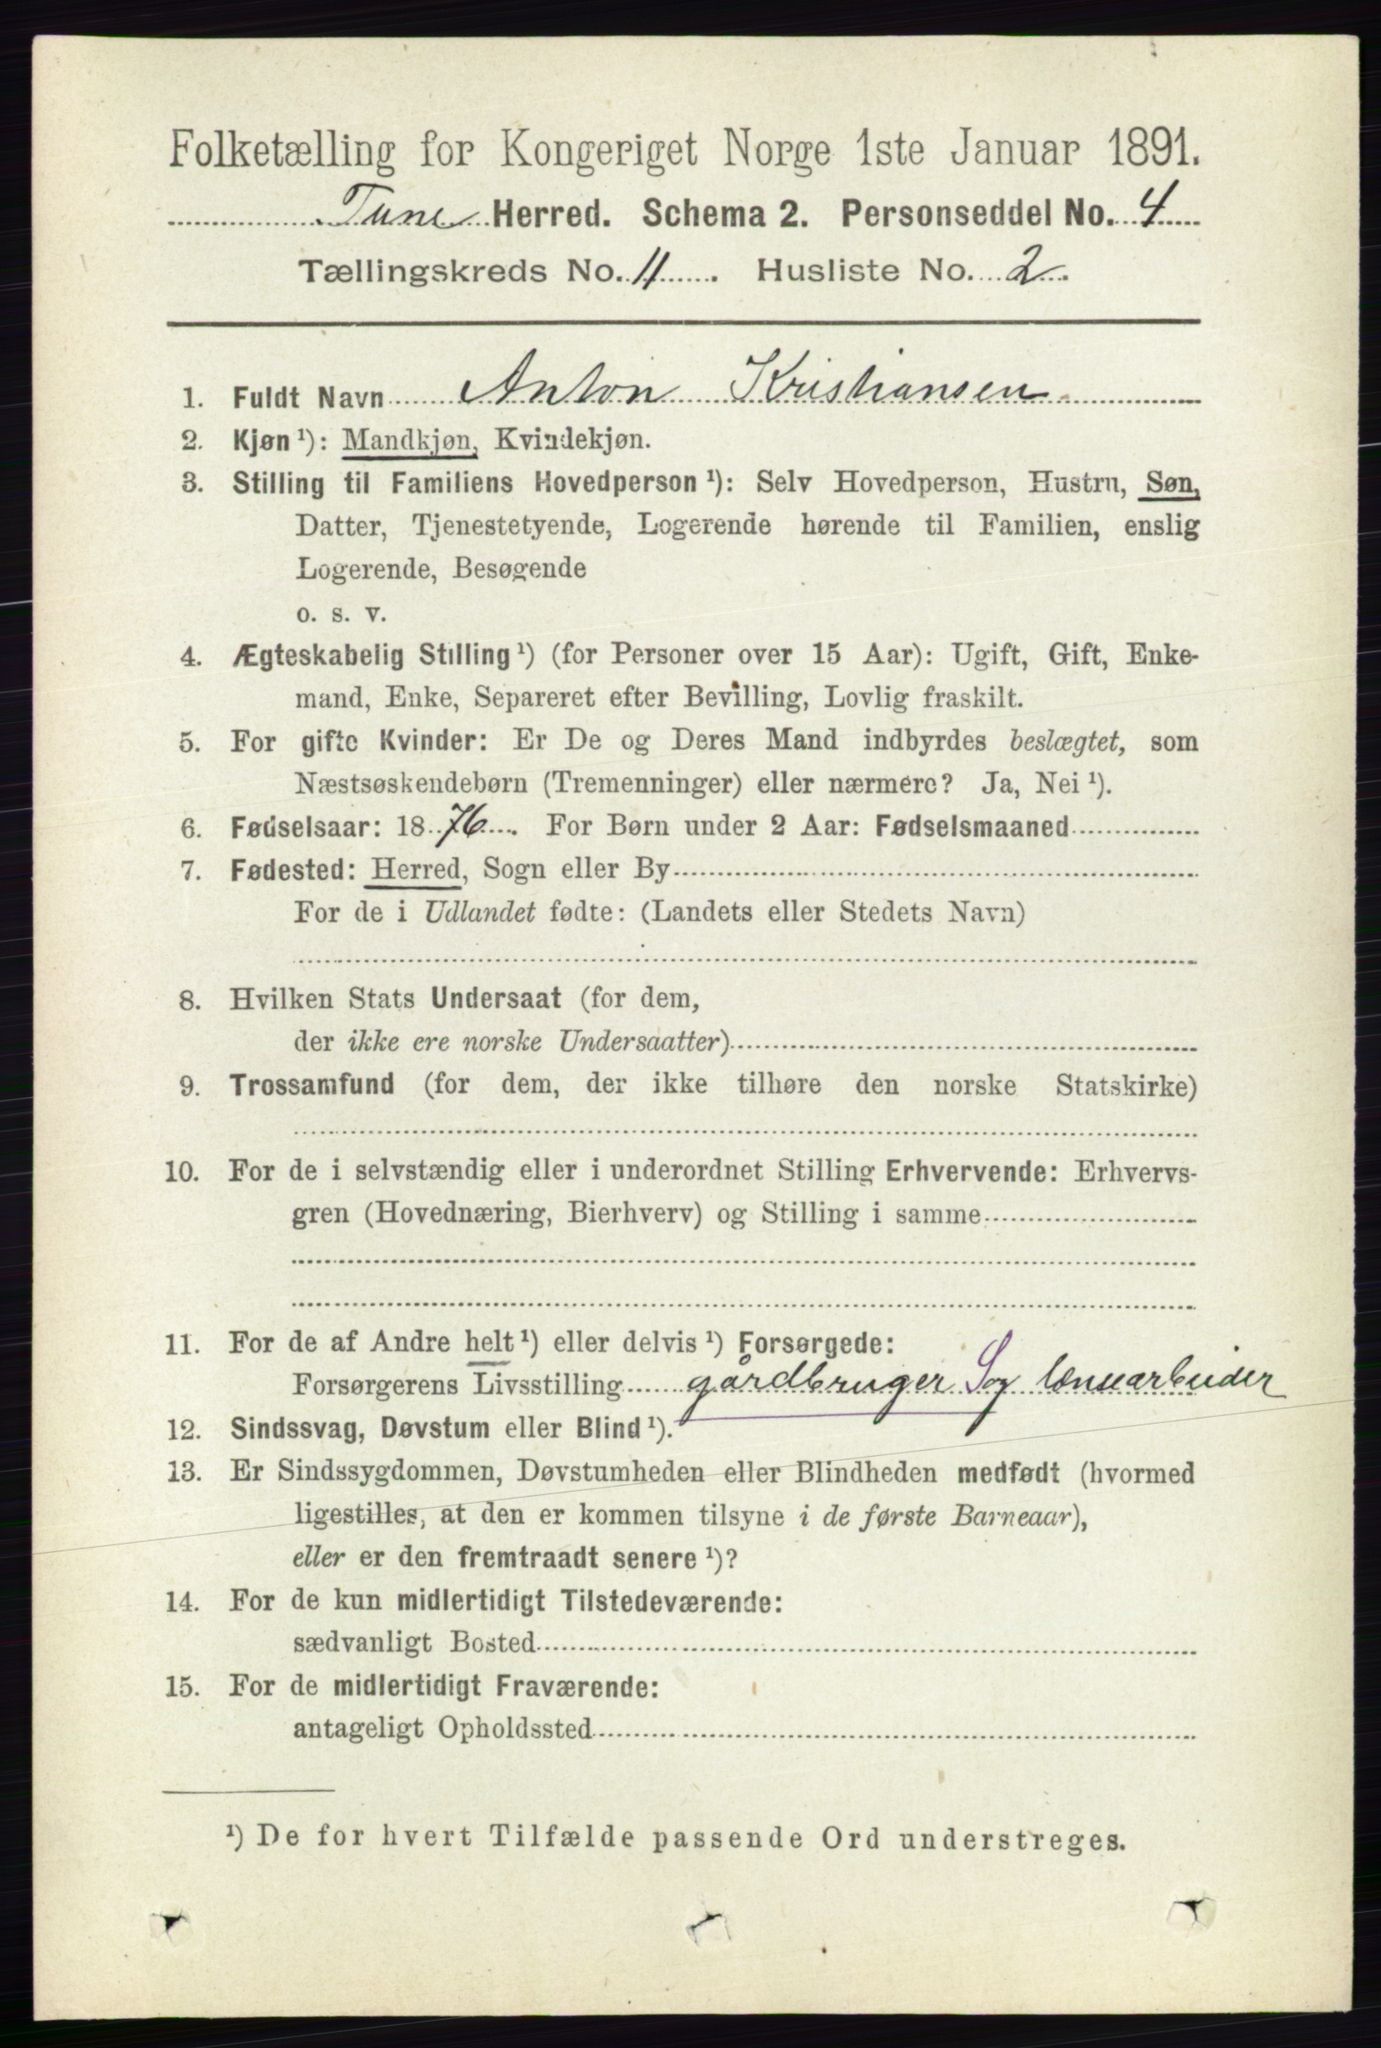 Folketælling for Kongeriget Norge 1ste Januar 1891.
Tune Herred. Schema 2. Personseddel No. 4
Tællingskreds No. 11. Husliste No. 2.
1. Fuldt Navn Anton Kristiansen
2. Kjøn ¹): Mandkjøn, Kvindekjøn.
3. Stilling til Familiens Hovedperson ¹): Selv Hovedperson, Hustru, Søn,
Datter, Tjenestetyende, Logerende hørende til Familien, enslig
Logerende, Besøgende
o. s. v.
4. Ægteskabelig Stilling ¹) (for Personer over 15 Aar): Ugift, Gift, Enke-
mand, Enke, Separeret efter Bevilling, Lovlig fraskilt.
5. For gifte Kvinder: Er De og Deres Mand indbyrdes beslægtet, som
Næstsøskendebørn (Tremenninger) eller nærmere? Ja, Nei ¹).
6. Fødselsaar: 1876. For Børn under 2 Aar: Fødselsmaaned
7. Fødested: Herred, Sogn eller By
For de i Udlandet fødte: (Landets eller Stedets Navn)
8. Hvilken Stats Undersaat (for dem,
der ikke ere norske Undersaatter)
9. Trossamfund (for dem, der ikke tilhøre den norske Statskirke)
10. For de i selvstændig eller i underordnet Stilling Erhvervende: Erhvervs-
gren (Hovednæring, Bierhverv) og Stilling i samme
11. For de af Andre helt ¹) eller delvis ¹) Forsørgede:
Forsørgerens Livsstilling gårdbruger S og lænsearbeider
12. Sindssvag, Døvstum eller Blind ¹).
13. Er Sindssygdommen, Døvstumheden eller Blindheden medfødt (hvormed
ligestilles, at den er kommen tilsyne i de første Barneaar),
eller er den fremtraadt senere ¹)?
14. For de kun midlertidigt Tilstedeværende:
sædvanligt Bosted
15. For de midlertidigt Fraværende:
antageligt Opholdssted
¹) De for hvert Tilfælde passende Ord understreges.